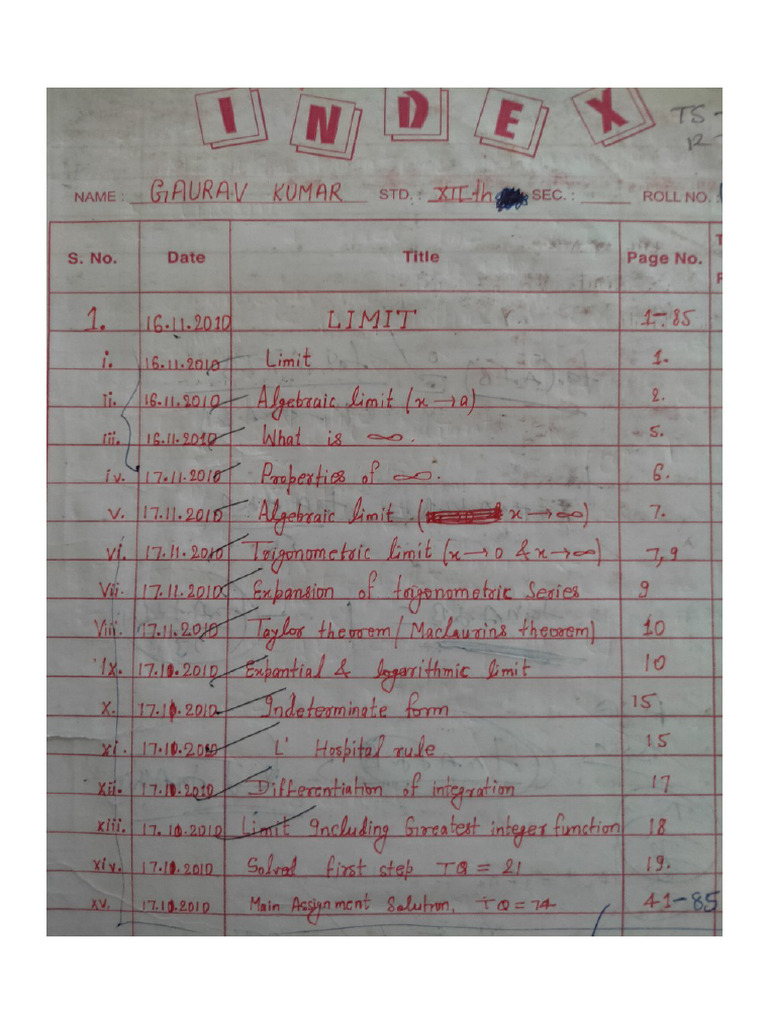 INDEX
TS -
12 -
NAME : GAURAV KUMAR STD. : XIIth SEC. : ROLL NO. :
S. No. Date Title Page No.
1. 16.11.2010 LIMIT 1-85
i. 16.11.2010 Limit 1.
ii. 16.11.2010 Algebraic limit (x→a) 2.
iii. 16.11.2010 What is ∞. 5.
iv. 17.11.2010 Properties of ∞. 6.
v. 17.11.2010 Algebraic limit (x→∞) 7.
vi. 17.11.2010 Trigonometric limit (x→0 & x→∞) 7,9
Vii. 17.11.2010 Expansion of trigonometric Series 9
Viii. 17.11.2010 Taylor theorem/Maclaurins theorem) 10
ix. 17.10.2010 Expantial & logarithmic limit 10
x. 17.10.2010 Indeterminate form 15
xi. 17.10.2010 L' Hospital rule 15
xii. 17.10.2010 Differentiation of integration 17
xiii. 17.10.2010 Limit Including Greatest integer function 18
xiv. 17.10.2010 Solved first step TQ = 21 19.
xv. 17.10.2010 Main Assignment Solution, TQ = 74 41-85